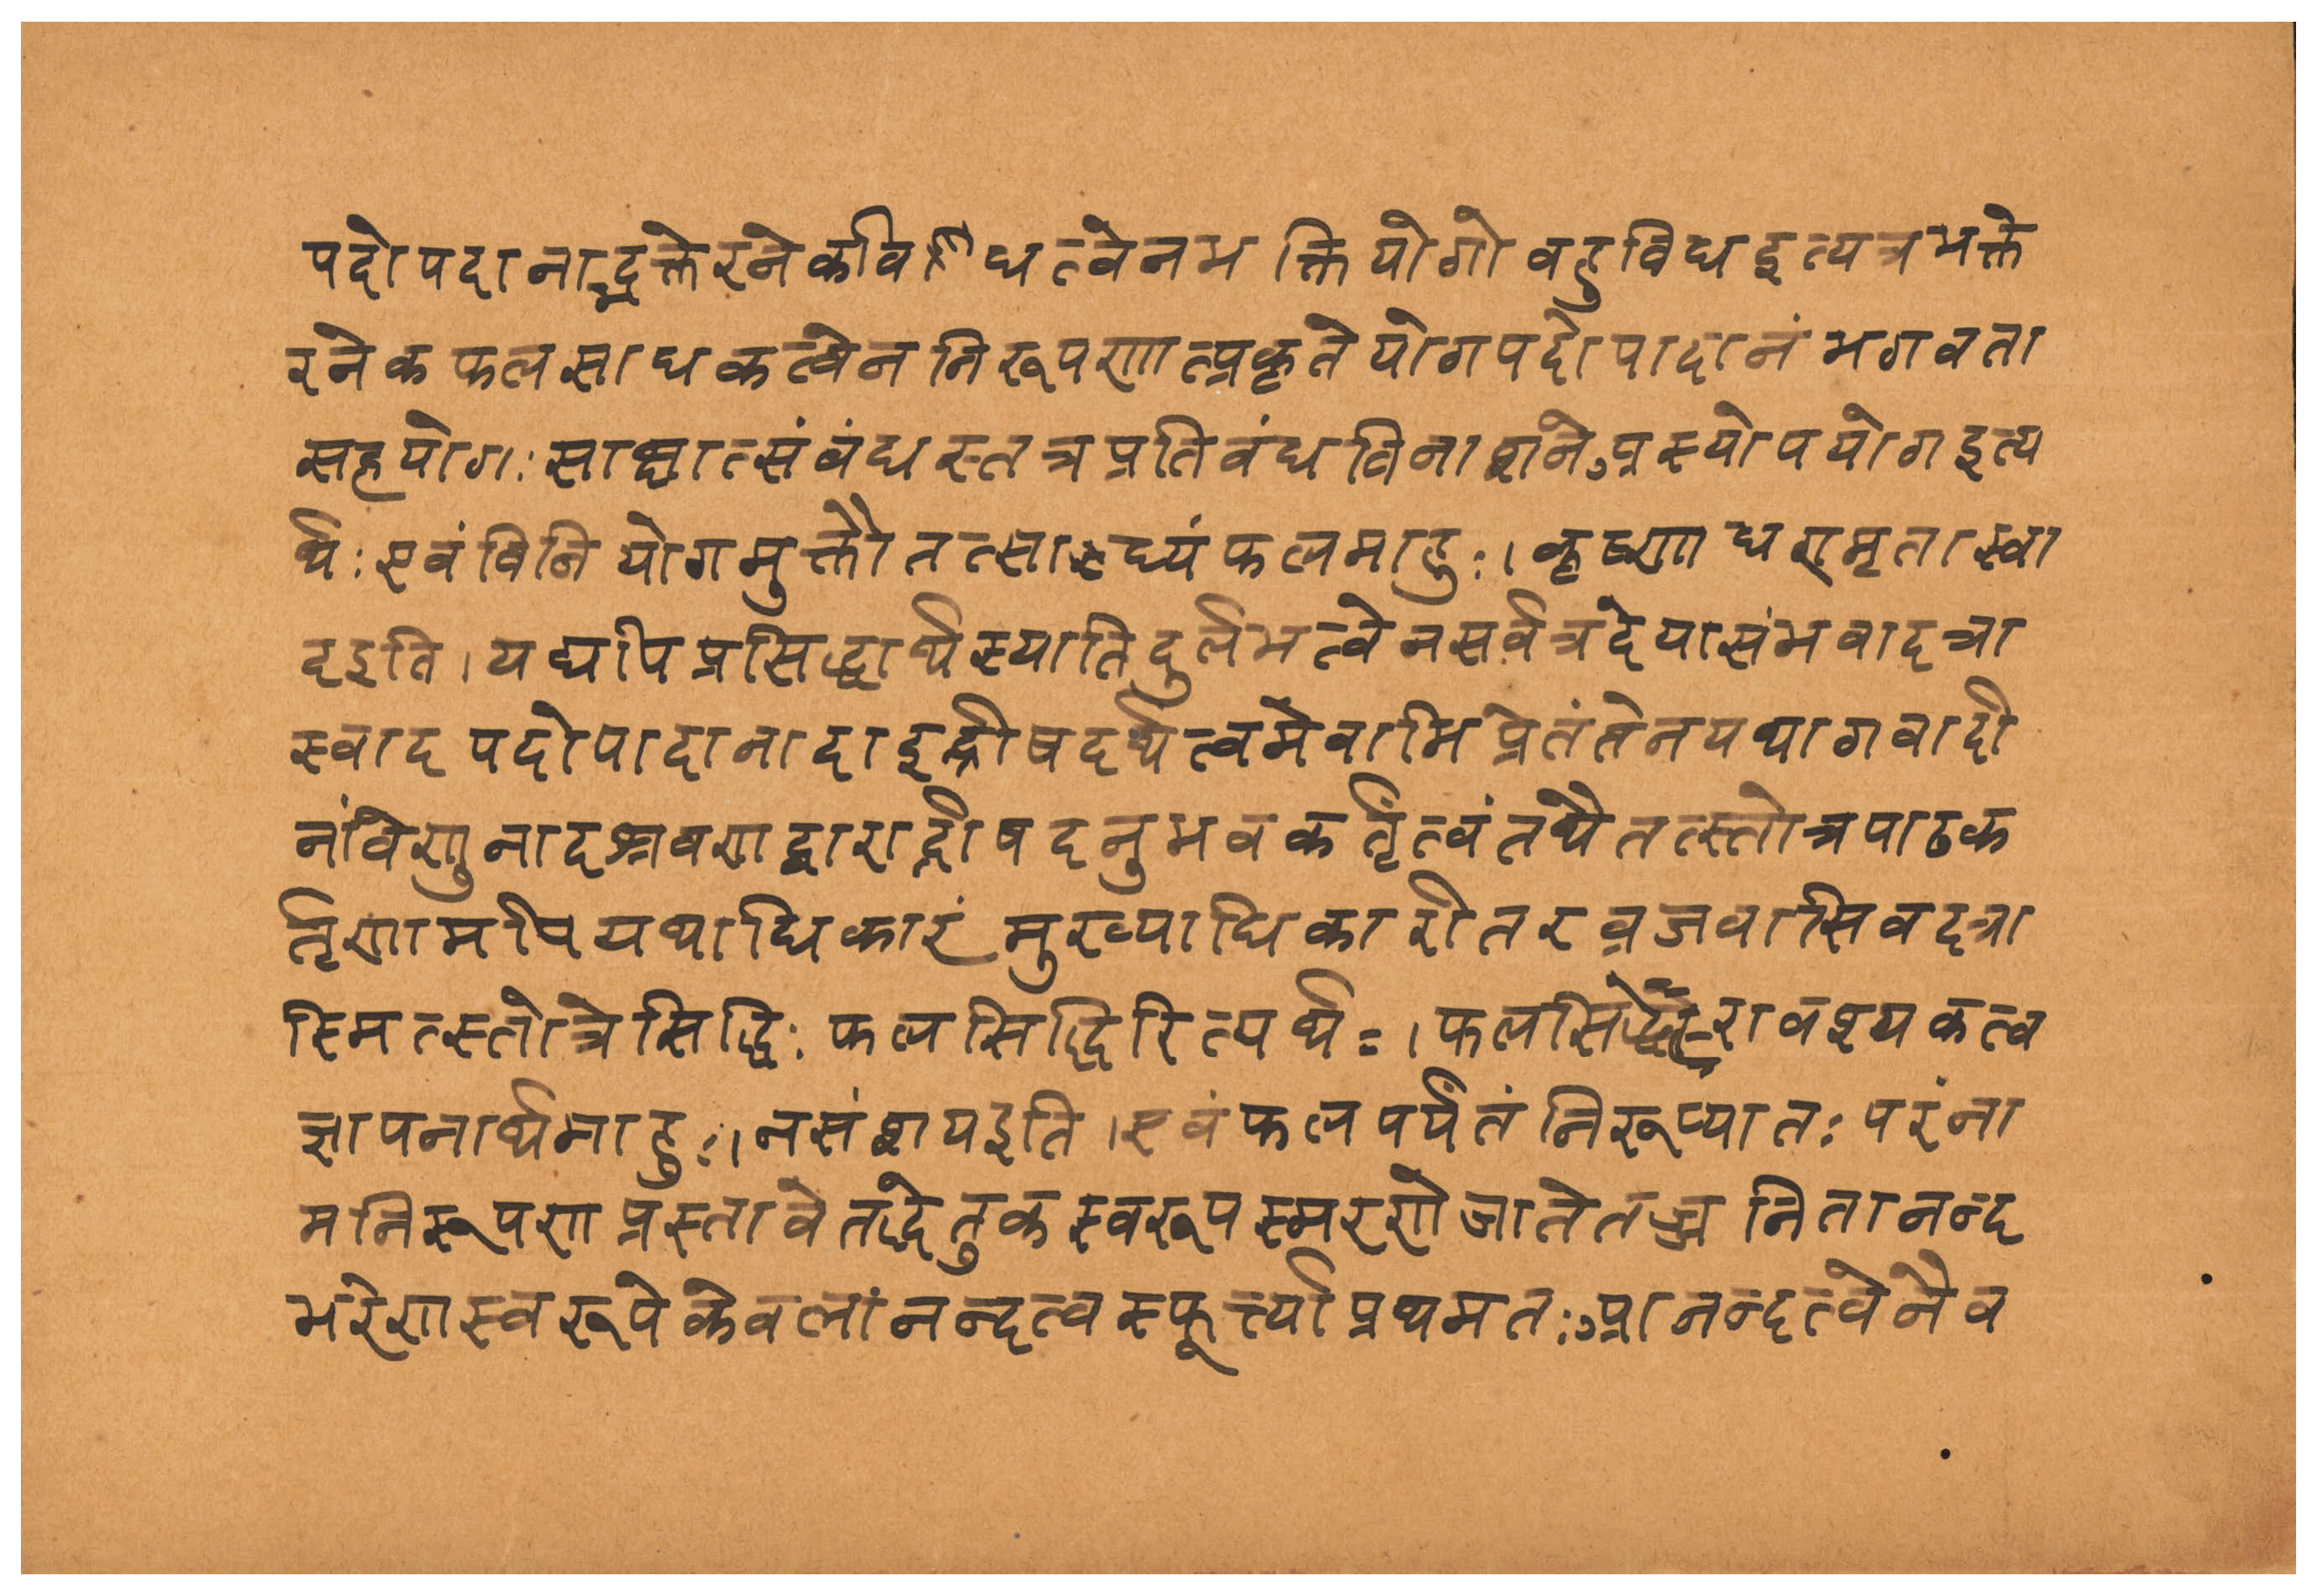 पदोपदानाद्भक्तेरनेकविधत्वेनभक्तियोगोबहुविधइत्यत्रभक्ते
रनेकफलसाधकत्वेननिरूपणात्प्रकृतेयोगपदोपादानंभगवता
सहयोगःसाक्षात्संबंधस्तत्रप्रतिबंधविनाशनेअस्योपयोगइत्य
र्थःएवंविनियोगमुक्तौतत्साध्यंफलमाहुः।कृष्णाधरामृतास्वा
दइति।यद्यपिप्रसिद्धार्थस्यातिदुर्लभत्वेनसर्वत्रदेयासंभवादत्रा
स्वादपदोपादानादाङ्ईषदर्थत्वमेवाभिप्रेतंतेनयथागवादी
नंवेणुनादश्रवणद्वाराईषदनुभवकर्तृत्वंतथैतत्स्तोत्रपाठक
र्तृणामपियथाधिकारंमुख्याधिकारीतरव्रजवासिवदत्रा
स्मित्स्तोत्रेसिद्धिःफलसिद्धिरित्यर्थः।फलसिद्धेरावश्यकत्व
ज्ञापनार्थमाहुः।नसंशयइति।एवंफलपर्यंतंनिरूप्यातःपरंना
मनिरूपणप्रस्तावेतद्धेतुकस्वरूपस्मरणेजातेतज्जनितानन्द
भरेणस्वरूपेकेवलांनन्दत्वस्फूर्त्त्याप्रथमतःआनन्दत्वेनैव